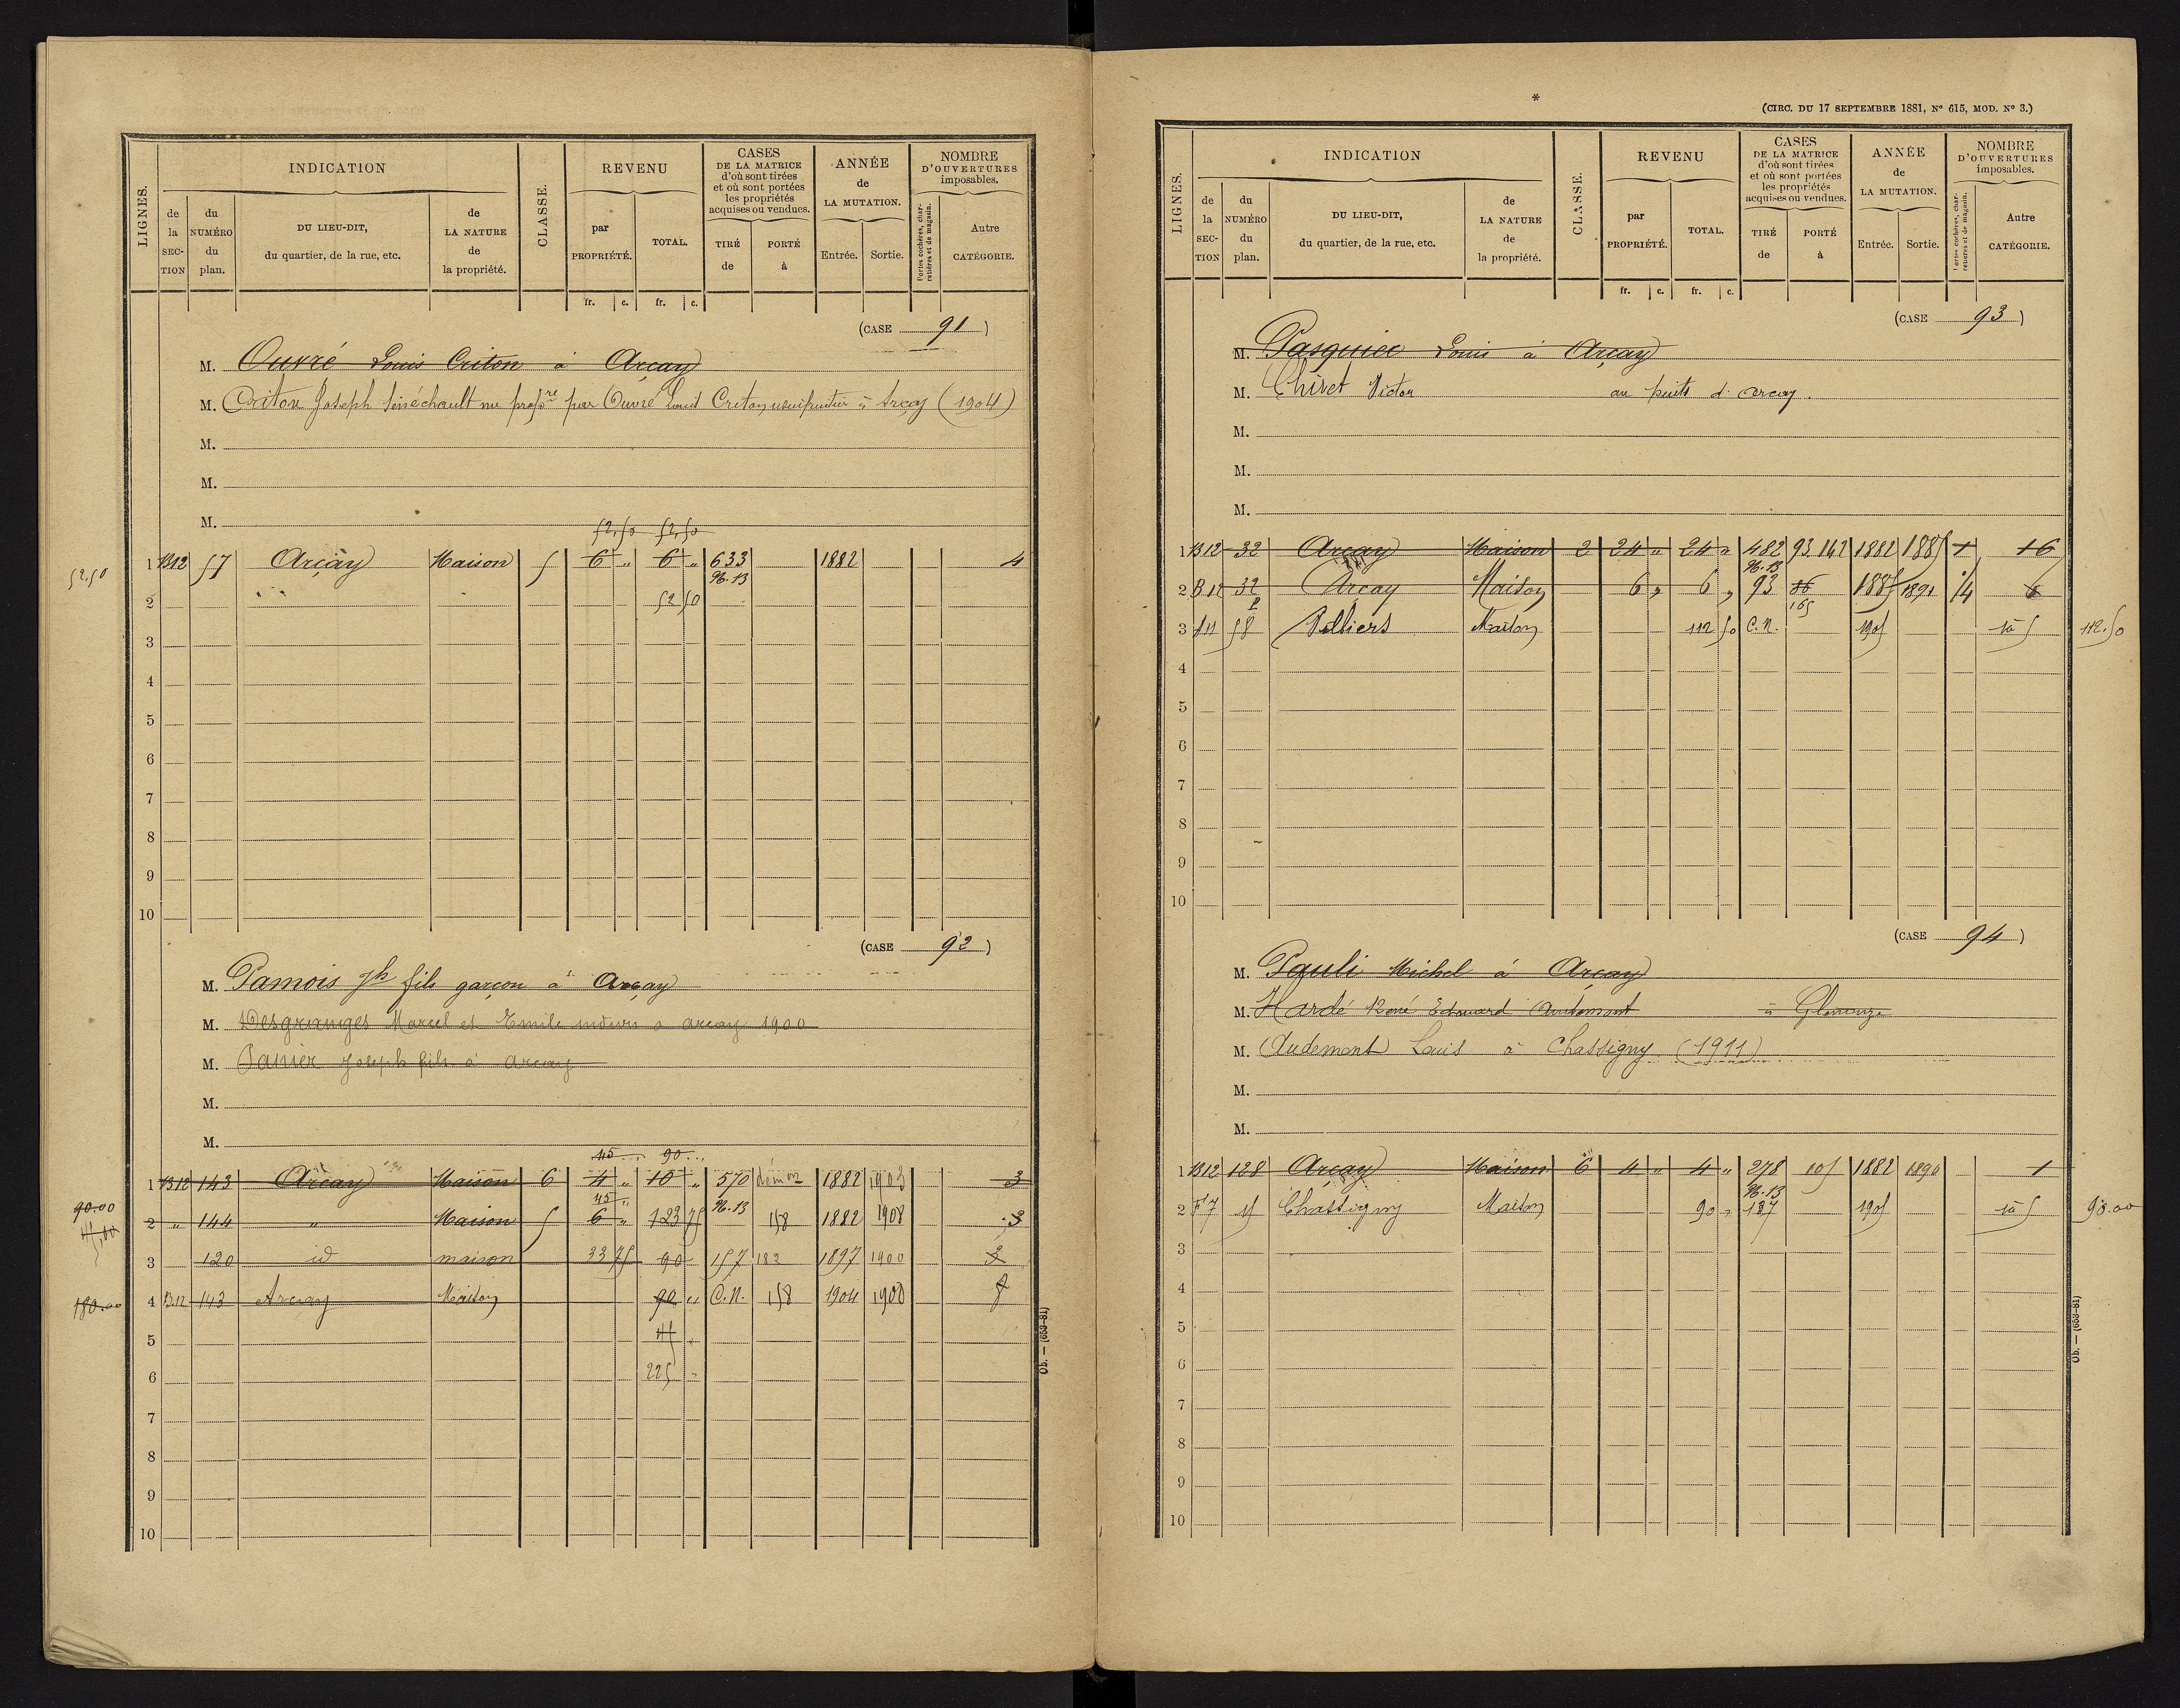 LIGNES.
INDICATION
CLASSE.
REVENU
CASES
DE LA MATRICE
d'où sont tirées
et où sont portées
les propriétés
acquises ou vendues.
ANNÉE
de
LA MUTATION.
NOMBRE
D'OUVERTURES
imposables.
de la SECTION
du NUMÉRO du plan.
DU LIEU-DIT,
du quartier, de la rue, etc.
de LA NATURE de la propriété.
par PROPRIÉTÉ.
TOTAL.
TIRÉ de
PORTÉ à
Entrée.
Sortie.
Portes cochères, charretières et de magasin.
Autre CATÉGORIE.
fr. c. fr. c.
(CASE 91)
M. Ouvré Louis Criton à Arçay
M. Criton Joseph Sénéchault nu propre par Ouvré Louis Criton usufruitier à Arçay (1904)
M.
M.
M.
52,50 52,50
52.50
1 B12 57 Arçay Maison 5 6 " 6 " 633 1882 4
96.13
2 52 50
3
4
5
6
7
8
9
10
(CASE 92)
M. Pamois Jh fils garçon à Arçay
M. Desgranges Marcel et Emile indivis à arcay 1900
M. Panier Joseph fils à arcay
M.
M.
45 " 90 "
1 B12 143 Arçay Maison 6 4 " 10 " 570 démon 1882 1903 3
45 " 96.13
90.00
45,00
2 " 144 " Maison 5 6 " 123 75 158 1882 1908 3
3 120 id maison 33 75 90 157 182 1897 1900 3
180.00
4 B12 143 Arcay Maison 90 " C.N. 158 1904 1908
5 45 "
6 225 "
7
8
9
10
Ob. — (653-81)
(CIRC. DU 17 SEPTEMBRE 1881, N° 615, MOD. N° 3.)
LIGNES.
INDICATION
CLASSE.
REVENU
CASES
DE LA MATRICE
d'où sont tirées
et où sont portées
les propriétés
acquises ou vendues.
ANNÉE
de
LA MUTATION.
NOMBRE
D'OUVERTURES
imposables.
de la SECTION
du NUMÉRO du plan.
DU LIEU-DIT,
du quartier, de la rue, etc.
de LA NATURE de la propriété.
par PROPRIÉTÉ.
TOTAL.
TIRÉ de
PORTÉ à
Entrée.
Sortie.
Portes cochères, charretières et de magasin.
Autre CATÉGORIE.
fr. c. fr. c.
(CASE 93)
M. Pasquier Louis à Arçay
M. Victor au puits d'arcay.
M.
M.
M.
1 B12 32 Arçay Maison 2 24 " 24 " 482 93.142 1882 1885 1 16
96.13
2 B12 32 P Arcay Maison 6 " 6 " 93 86 165 1885 1891 1/4 6
3 58 Maison 112 50 C.N. 1905 1 à 5 112.50
4
5
6
7
8
9
10
(CASE 94)
M. Pauli Michel à Arçay
M. Hardé René Edouard Audemont à Glenouze
M. Audemont Louis à Chassigny (1911)
M.
M.
1 B12 128 Arçay Maison 6 4 " 4 " 278 105 1882 1890 1
96.13
2 F7 15 Chassigny Maison 90 " 137 1905 1 à 5 90.00
3
4
5
6
7
8
9
10
Ob. — (653-81)